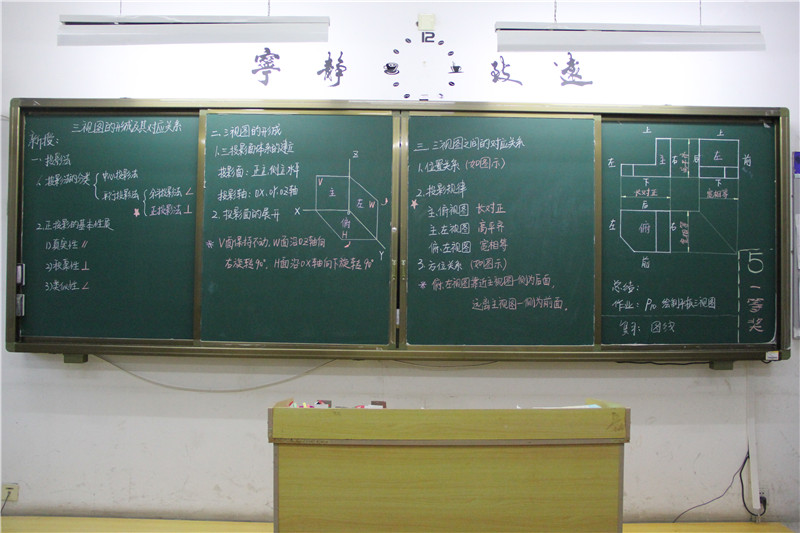 12
寧靜致遠
三视图的形成及其对应关系
新授：
一. 投影法
1. 投影法的分类
中心投影法
平行投影法
斜投影法 ∠
正投影法 ⊥
2. 正投影的基本性质
1) 真实性 //
2) 积聚性 ⊥
3) 类似性 ∠
二. 三视图的形成
1. 三投影面体系的建立
投影面：正立.侧立.水平
投影轴：OX.OY.OZ轴
2. 投影面的展开
※ V面保持不动，W面沿OZ轴向
右旋转90°，H面沿OX轴向下旋转90°
Z
V
主
左
W
X
俯
H
Y
三. 三视图之间的对应关系
1. 位置关系（如图示）
2. 投影规律
主.俯视图 长对正
主.左视图 高平齐
俯.左视图 宽相等
3. 方位关系（如图示）
※ 俯.左视图靠近主视图一侧为后面，
远离主视图一侧为前面。
上
上
左
主
右
高平齐
后
左
前
下
下
长对正
宽相等
后
左
俯
右
宽相等
前
总结：
作业：P70 绘制平板三视图
复习：图线
5
一等奖